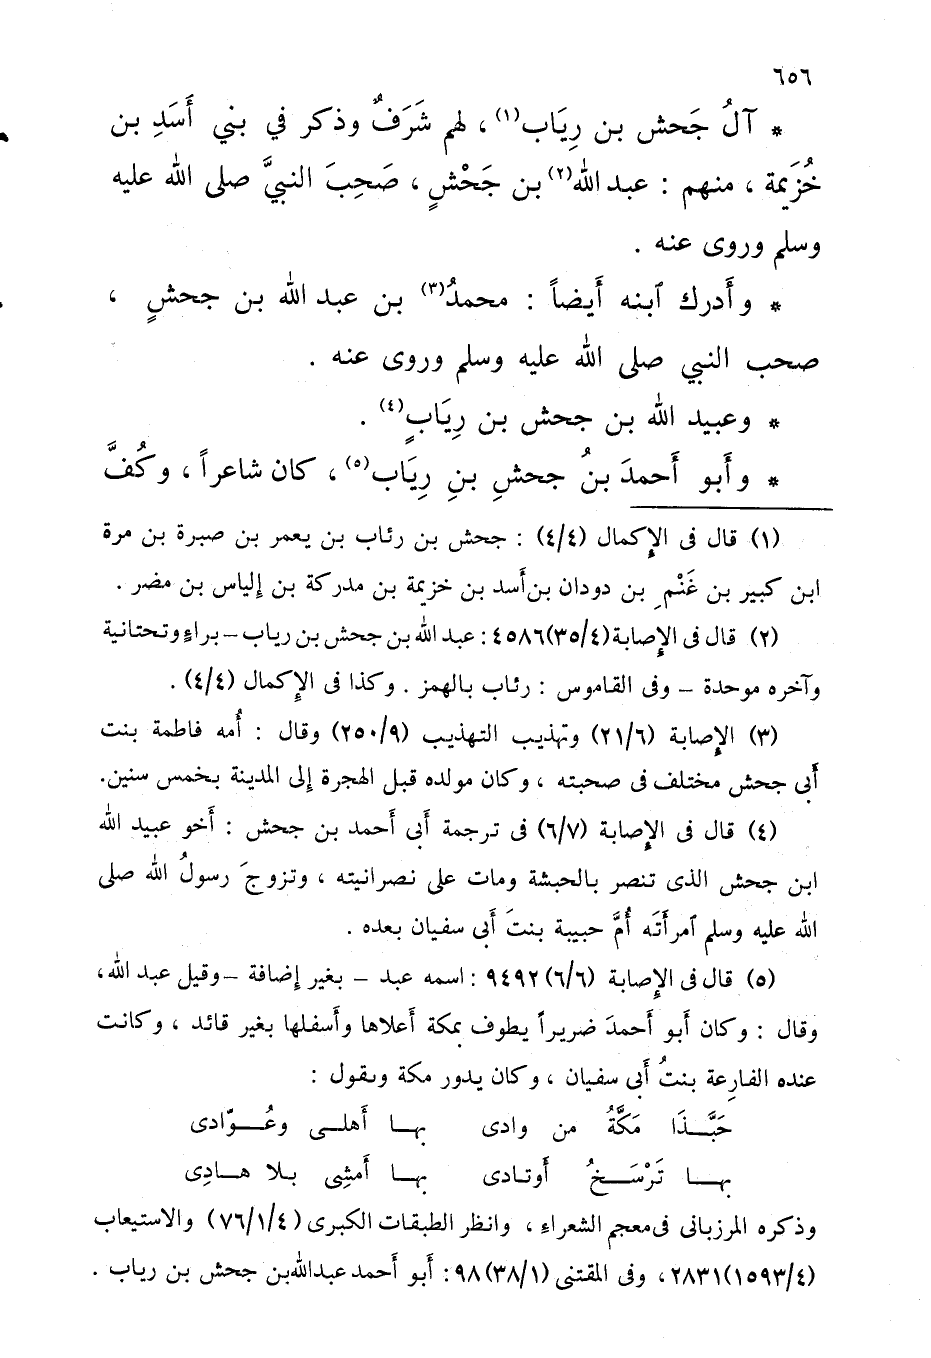 ٦٥٦
* آلُ جَحش بن رِيَاب(١) ، لهم شَرَفٌ وذكر في بني أَسَدِ بن
خُزَيمة ، منهم : عبد الله(٢) بن جَحْشٍ ، صَحِبَ النبيَّ صلى الله عليه
وسلم وروى عنه .
* وأَدرك ٱبنه أَيضاً : محمدُ(٣) بن عبد الله بن جحشٍ ،
صحب النبي صلى الله عليه وسلم وروى عنه .
* وعبيد الله بن جحش بن رِيَابٍ(٤) .
* وأَبو أَحمدَ بنُ جحشِ بنِ رِيَاب(٥) ، كان شاعراً ، وكُفَّ
(١) قال فى الإِكمال (٤/٤) : جحش بن رئاب بن يعمر بن صبرة بن مرة
ابن كبير بن غَنْمِ بن دودان بن أَسد بن خزيمة بن مدركة بن إلياس بن مضر .
(٢) قال فى الإِصابة (٣٥/٤) ٤٥٨٦ : عبد الله بن جحش بن رياب – براءٍ وتحتانية
وآخره موحدة – وفى القاموس : رئاب بالهمز . وكذا فى الإِكمال (٤/٤) .
(٣) الإِصابة (٢١/٦) وتهذيب التهذيب (٢٥٠/٩) وقال : أُمه فاطمة بنت
أَبى جحش مختلف فى صحبته ، وكان مولده قبل الهجرة إلى المدينة بخمس سنين.
(٤) قال فى الإِصابة (٦/٧) فى ترجمة أَبى أَحمد بن جحش : أَخو عبيد الله
ابن جحش الذى تنصر بالحبشة ومات على نصرانيته ، وتزوجَ رسولُ الله صلى
الله عليه وسلم ٱمرأَتَه أُمَّ حبيبة بنتَ أَبى سفيان بعده .
(٥) قال فى الإِصابة (٦/٦) ٩٤٩٢ : اسمه عبد – بغير إضافة – وقيل عبد الله،
وقال : وكان أَبو أَحمدَ ضريراً يطوف بمكة أَعلاها وأَسفلها بغير قائد ، وكانت
عنده الفارعة بنتُ أَبى سفيان ، وكان يدور مكة ويقول :
حَبَّــذَا مَكَّةُ من وادى بهـا أَهلـى وعُـوّادى
بهـا تَرْسَـخُ أَوتادى بهـا أَمشِى بـلا هـادِى
وذكره المرزبانى فى معجم الشعراء ، وانظر الطبقات الكبرى (٧٦/١/٤) والاستيعاب
(١٥٩٣/٤) ٢٨٣١ ، وفى المقتنى (٣٨/١) ٩٨ : أَبو أَحمد عبدالله بن جحش بن رياب .